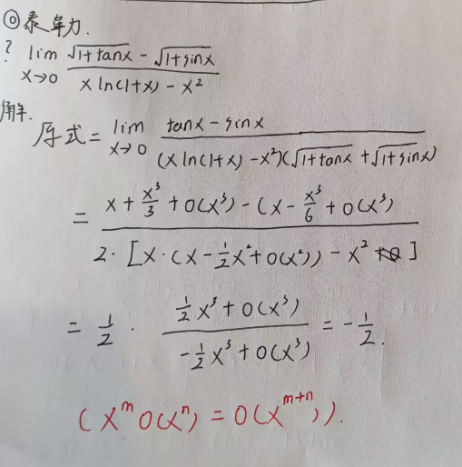 ◎泰勒.
? lim x→0 (√(1+tanx) - √(1+sinx)) / (x ln(1+x) - x²)
解.
原式 = lim x→0 (tanx - sinx) / ((x ln(1+x) - x²)(√(1+tanx) + √(1+sinx)))
= (x + x³/3 + o(x³) - (x - x³/6 + o(x³)) / (2·[x·(x - ½x² + o(x²)) - x²])
= 1/2 · (½x³ + o(x³)) / (-½x³ + o(x³)) = -1/2.
(x^m o(x^n) = o(x^{m+n})).